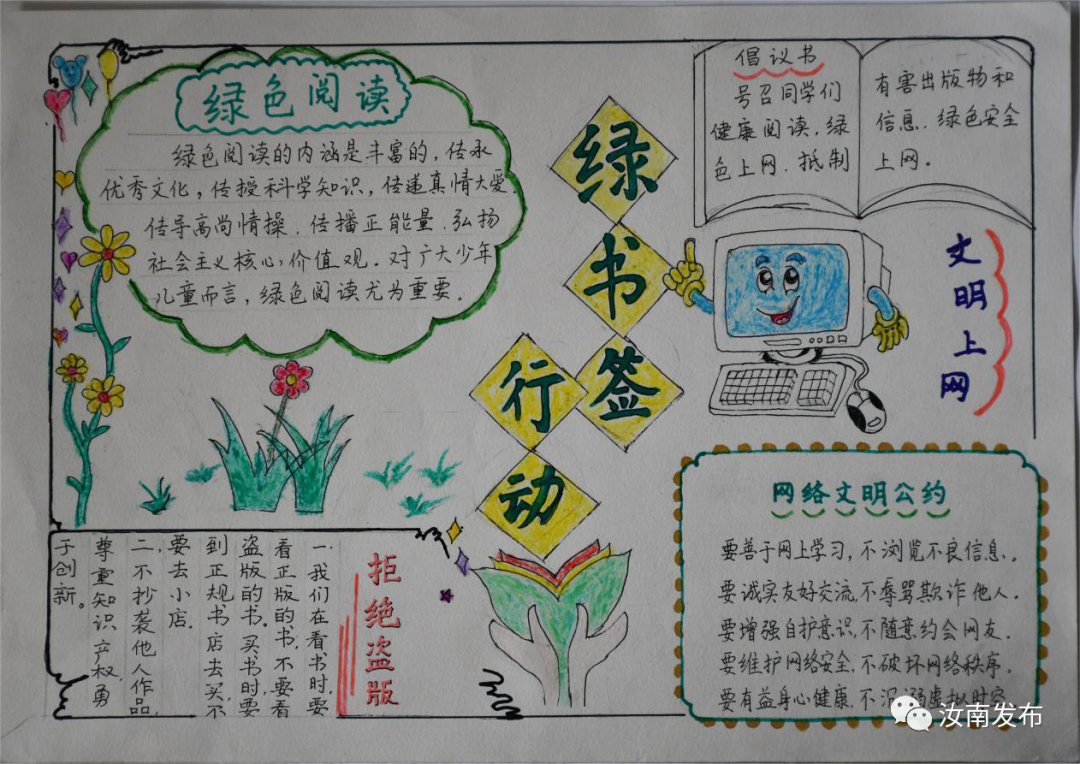 绿色阅读
绿色阅读的内涵是丰富的，传承
优秀文化，传授科学知识，传递真情大爱.
传导高尚情操.传播正能量.弘扬
社会主义核心价值观.对广大少年
儿童而言，绿色阅读尤为重要.
绿
书
签
行
动
倡议书
号召同学们
健康阅读，绿
色上网.抵制
有害出版物和
信息.绿色安全
上网.
文明上网
拒绝盗版
一.我们在看书时，要
看正版的书，不要看
盗版的书，买书时，要
到正规书店去买，不
要去小店.
二.不抄袭他人作品，
尊重知识产权，勇
于创新。
网络文明公约
要善于网上学习，不浏览不良信息.
要诚实友好交流，不辱骂欺诈他人.
要增强自护意识，不随意约会网友.
要维护网络安全，不破坏网络秩序.
要有益身心健康，不沉溺虚拟时空
汝南发布